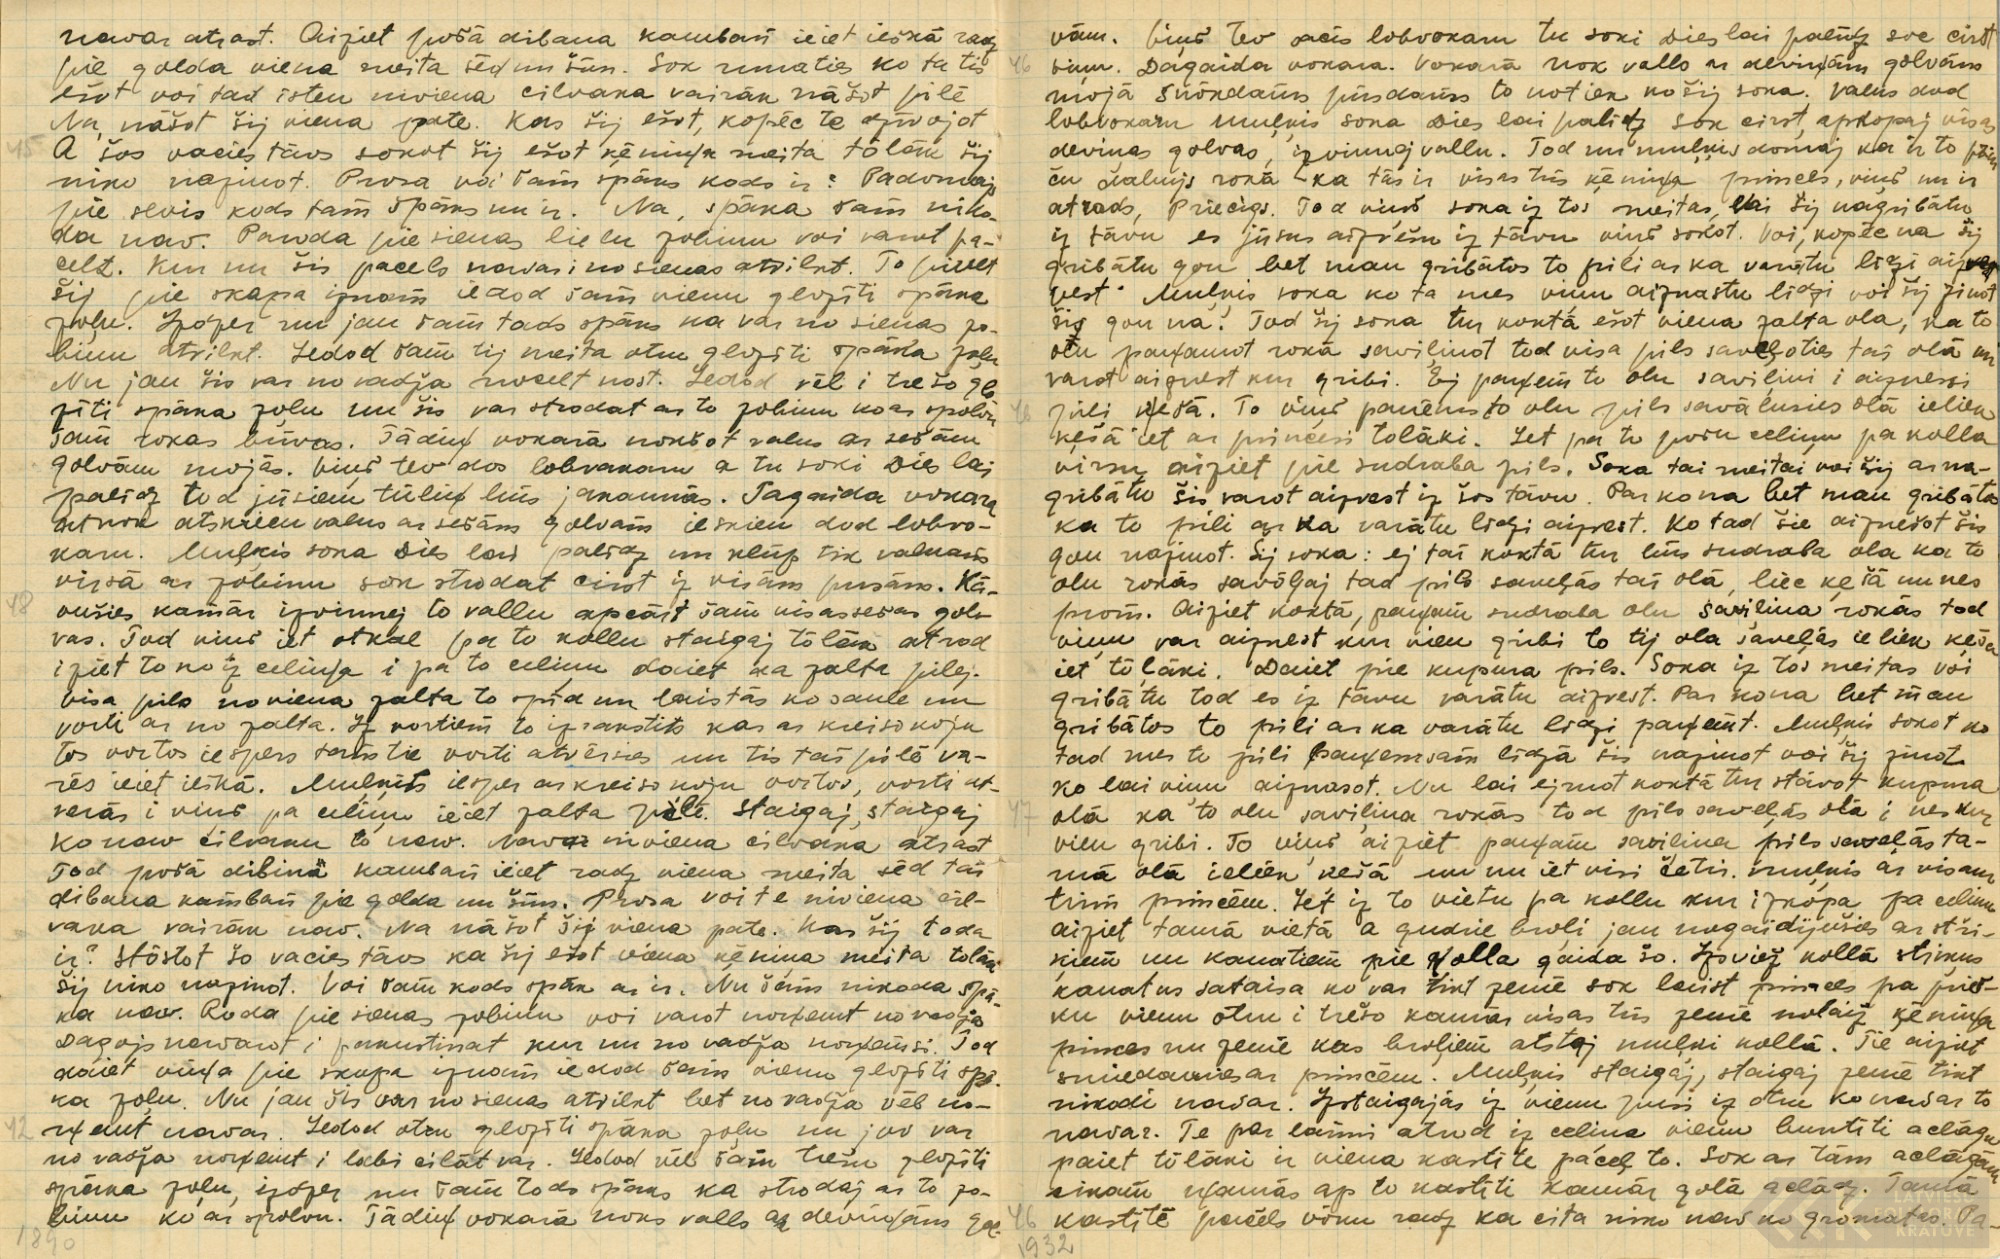 navar atrast. Aiziet pošā dibana kambarī ieiet ieškā radz
pie golda viena meita sēd un šūn. Sok runaties ko ta tis
ešot voi tad īsten niviena cilvaka vairāk nāšot pilē
Na, nāšot šij viena pate. Kas šij ešot, kopēc te dzīvojot
A šos vacies tāvs sokot šij ešot ķēniņa meita tōlāk šij
niko nazinot. Prosa voi šam spāks kods ir? Padomaj
pie sevis kods tam spāks nu ir. Na, spāka šam niko-
da nav. Paroda pie sienas lielu zobinu voi varot pa-
celt. Kur nu šis pacels navar i no sienas atvilkt. To pieiet
šij pie skapa izņam iedod šam vienu glozīti spāka
zoļu. Izdzer nu jau šam tads spāks ka var no sienas zo-
binu atvilkt. Iedod šam tij meita otru glozīti spāka zoļu
Nu jau šis var no vadža nocelt nost. Iedod vēl i trešo glo
zīti spāka zoļu nu šis var strodat ar to zobinu ko ar spolvu
šam rokas būvas. Tādiņ vokarā nokšot valns ar sešām
golvām mojās. Viņš tev dos lobvakaru a tu soki Dies lai
palīdz tod jūsiem tūliņ būs jakaunās. Sagaida vokara
atnok atskrien valns ar sešāms golvam ieskien dod lobvo-
karu. Muļķis soka Dies lai palīdz un klūp tik valnam
virsā ar zobinu sok strodat cirst iz visām pusām. Kā-
vušies kamār izvinnej to vallu apcārt šam visas sešas gol-
vas. Tod viņš iet otkal pa to kollu staigaj tōlāk atrod
iziet to nōtz celiņa i pa to celiņu daiet ka zalta pilej.
visa pils no viena zalta to spīd un laistās ko saule un
vorti ar no zalta. Iz vortiem to izrakstīts kas ar kreiso koju
tos vortos iespers tam tie vorti atvērsies un tis taī pilē va-
rēs ieiet iešķā. Muļķits iesper ar kreiso koju vortos, vorti at-
verās i viņš pa celiņu ieiet zalta pilē. Staigaj, staigaj
ko nav cilvaku to nav. Navar niviena cilvaka atrast
Tod pošā dibinā kambari ieiet radz viena meita sēd taī
dibana kambarī pie golda un šūn. Prosa voi te niviena cil-
vaka vairāk nav. Na nāšot šij viena pate. Kas šij toda
ir? Stōstot šo vacies tāvs ka šij ešot viena ķēniņa meita tolāk
šij niko nazinot. Voi šam kods spāk ar ir. Nu šām nikoda spā-
ka nav. Roda pie sienas zobinu voi varot noņemt no vadža
Dagājs navarot i pakustinat kur nu no vadža noņemsi. Tod
daiet viņa pie skapa izņam iedod šam vienu glozīti spā-
ka zoļu. Nu jau šis var no sienas atvilkt bet no vadža vēl no-
ņemt navar. Iedod otru glozīti spāka zoļu nu jov var
no vadža noņemt i lobi cilāt var. Iedod vēl šam trešu glozīti
spāka zoļu, izdzer nu šam tods spāks ka strodaj ar to zo-
binu ko ar spolvu. Tādiņ vokarā noks valls ar deviņāms gol-
vām. Viņš tev sacīs lobvokaru tu soki Dies lai palīdz soc cirst
viņu. Dagaida vokara. Vokarā nok valls ar deviņām golvām
mojā šņōkdams pūzdams to notiek no šij soka. Valns dod
lobvokaru muļķis soka Dies lai palīdz sok cirst, apkopaj visas
deviņas golvas, izvinnej vallu. Tod nu muļķis domaj ka ir to
ka tās ir visas trīs ķēniņa princeses, viņš nu ir
atrads, priecīgs. Tod viņš soka iz tos meitas, voi šij nagribātu
iz tāvu es jūsus aizvešu iz tāvu viņš sokot. Voi, kopēc na šij
gribātu gon bet man gribātos to pili ar ka varātu līdzi aizvest
vest. Muļķis soka ko ta mes viņu aiznastu līdzi voi šij zinot
šij gon na. Tod šij soka tur koktā ešot viena zalta ola, ka to
olu paņamot rokā saviļinot tod visa pils saveļoties taī olā un
varot aiznest kur gribi. Ej paņem to olu saviļini i aiznessi
pili ķešā. To viņš paņems to olu pils savālusies olā ieliek
ķešā iet ar princesi tolāki. Iet pa to pošu celiņu pa kolla
virsu aiziet pie sudraba pils. Soka tai meitai voi šij ar na-
gribātu šis varot aizvest iz šos tāvu. Par ko na bet man gribātos
ka to pili ar ka varātu līdzi aizvest. Ko tad šie aiznešot šis
gon nazinot. Šij soka: ej taī koktā tur būs sudraba ola ka to
olu rokās savōļaj tad pils saveļās taī olā, liec ķešā un nes
prom. Aiziet koktā, paņam sudraba olu saviļina rokās tod
viņu var aiznest kur vien gribi to tij ola saveļās ieliek ķešā
iet tōlāki. Daiet pie kupura pils. Soka iz tos meitas voi
gribātu tod es iz tāvu varātu aizvest. Par ko na bet man
gribātos to pili ar ka varātu līdzi paņemt. Muļķis sokot ko
tad mes to pili paņemsam līdzā šis nazinot voi šij zinot
ko lai viņu aiznasot. Nu lai ejnot koktā tur stāvot kupura
olā ka to olu saviļina rokās tod pils saveļās olā i nes kur
vien gribi. To viņš aiziet paņam saviļina pils saveļās ta-
mā olā ieliek ķešā un nu iet visi četri. Muļķis ar visam
trim princēm. Iet iz to vietu pa kollu kur izkōpa pa celiņu
aiziet tamā vietā a gudrie broļi jau nogaidijušies ar stri-
ķiem un kanatiem pie kolla gaida šo. Izsviež kollā striķus
kanatus sataisa ko var tikt zemē sok laist princes pa pries-
ku vienu otru i trešo kamār visas trīs zemē nolaiz ķēniņa
princes nu zemē kas broļiem atstaj muļķi kollā. Tie aiziet
smiedamies ar princēm. Muļķis staigaj, staigaj zemē tikt
nikodi navar. Izstaigajās iz vienu pusi iz otru ko navar to
navar. Te par laimi atrod iz celiņa vienu buntīti aclāgu
paiet tōlāki ir viena kastīte pacel to. Sok ar tām aclāgām
cikam ņamās ap to kastīti kamār golā aclādz. Tamā
kastītē pacels vōku radz ka cita niko nav ko gromatas. Pa-
45
48
42
1890
46
46
47
46
1932
LATVIEŠU
FOLKLORAS
KRĀTUVE